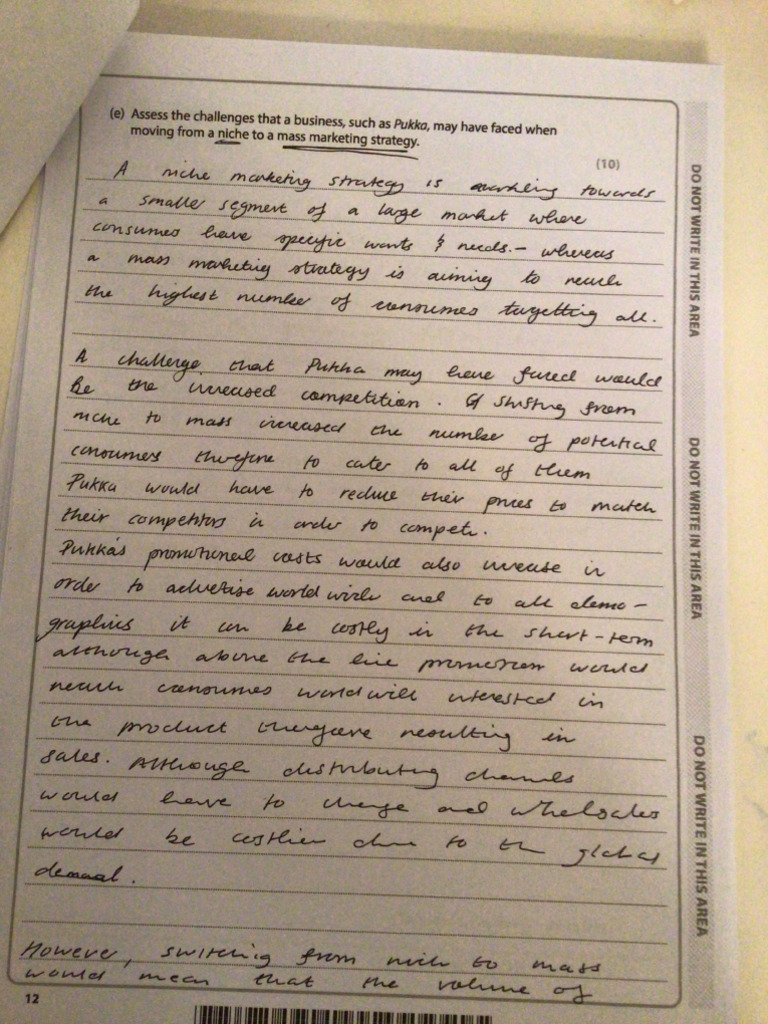 (e) Assess the challenges that a business, such as Pukka, may have faced when
moving from a niche to a mass marketing strategy.
(10)
A niche marketing strategy is marketing towards
a smaller segment of a large market where
consumes have specific wants & needs. - whereas
a mass marketing strategy is aiming to reach
the highest number of consumes targetting all.
A challenge that Pukka may have faced would
Be the increased competition. Shifting from
niche to mass increased the number of potential
consumers therefore to cater to all of them
Pukka would have to reduce their prices to match
their competitors in order to compete.
Pukka's promotional costs would also increase in
order to advertise world wide and to all demo-
graphics it can be costly in the short-term
although above the line promotion would
reach consumes world will interested in
the product therefore resulting in
sales. Although distributing channels
would have to change and wholesales
would be costlier due to the global
demand.
However, switching from nich to mass
would mean that the volume of
12
DO NOT WRITE IN THIS AREA
DO NOT WRITE IN THIS AREA
DO NOT WRITE IN THIS AREA